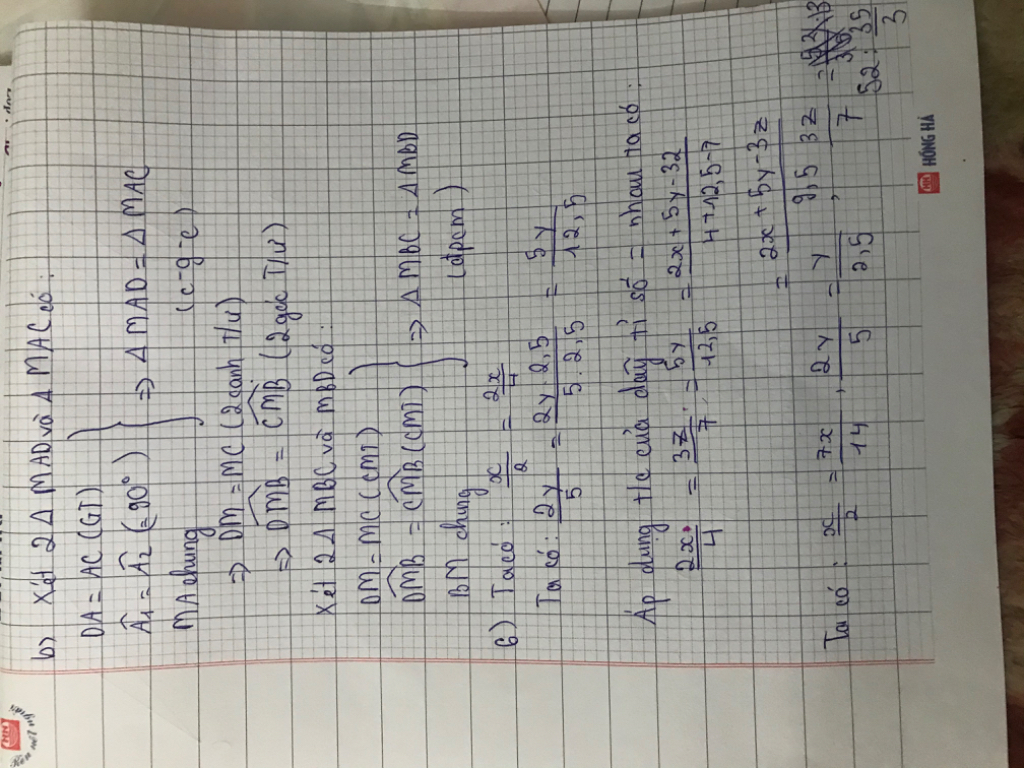 b) Xét 2 Δ MAD và Δ MAC có:
DA = AC (GT)
Â1 = Â2 (= 90°) } => Δ MAD = Δ MAC
MA chung (c-g-c)
=> DM = MC (2 cạnh T/ư)
=> DMB = CMB (2 góc T/ư)
Xét 2 Δ MBC và MBD có:
DM = MC (CMT)
DMB = CMB (CMT) } => Δ MBC = Δ MBD
BM chung (đpcm)
6) Ta có: x/2 = 2x/4
Ta có: 2y/5 = 2y.2,5/5.2,5 = 5y/12,5
Áp dụng t/c của dãy tỉ số = nhau ta có:
2x/4 = 3z/7 = 5y/12,5 = 2x+5y-3z/4+12,5-7
= 2x+5y-3z/9,5
Ta có: x/2 = 7x/14, 2y/5 = y/2,5, 3z/7
52: 35/3
HỒNG HÀ